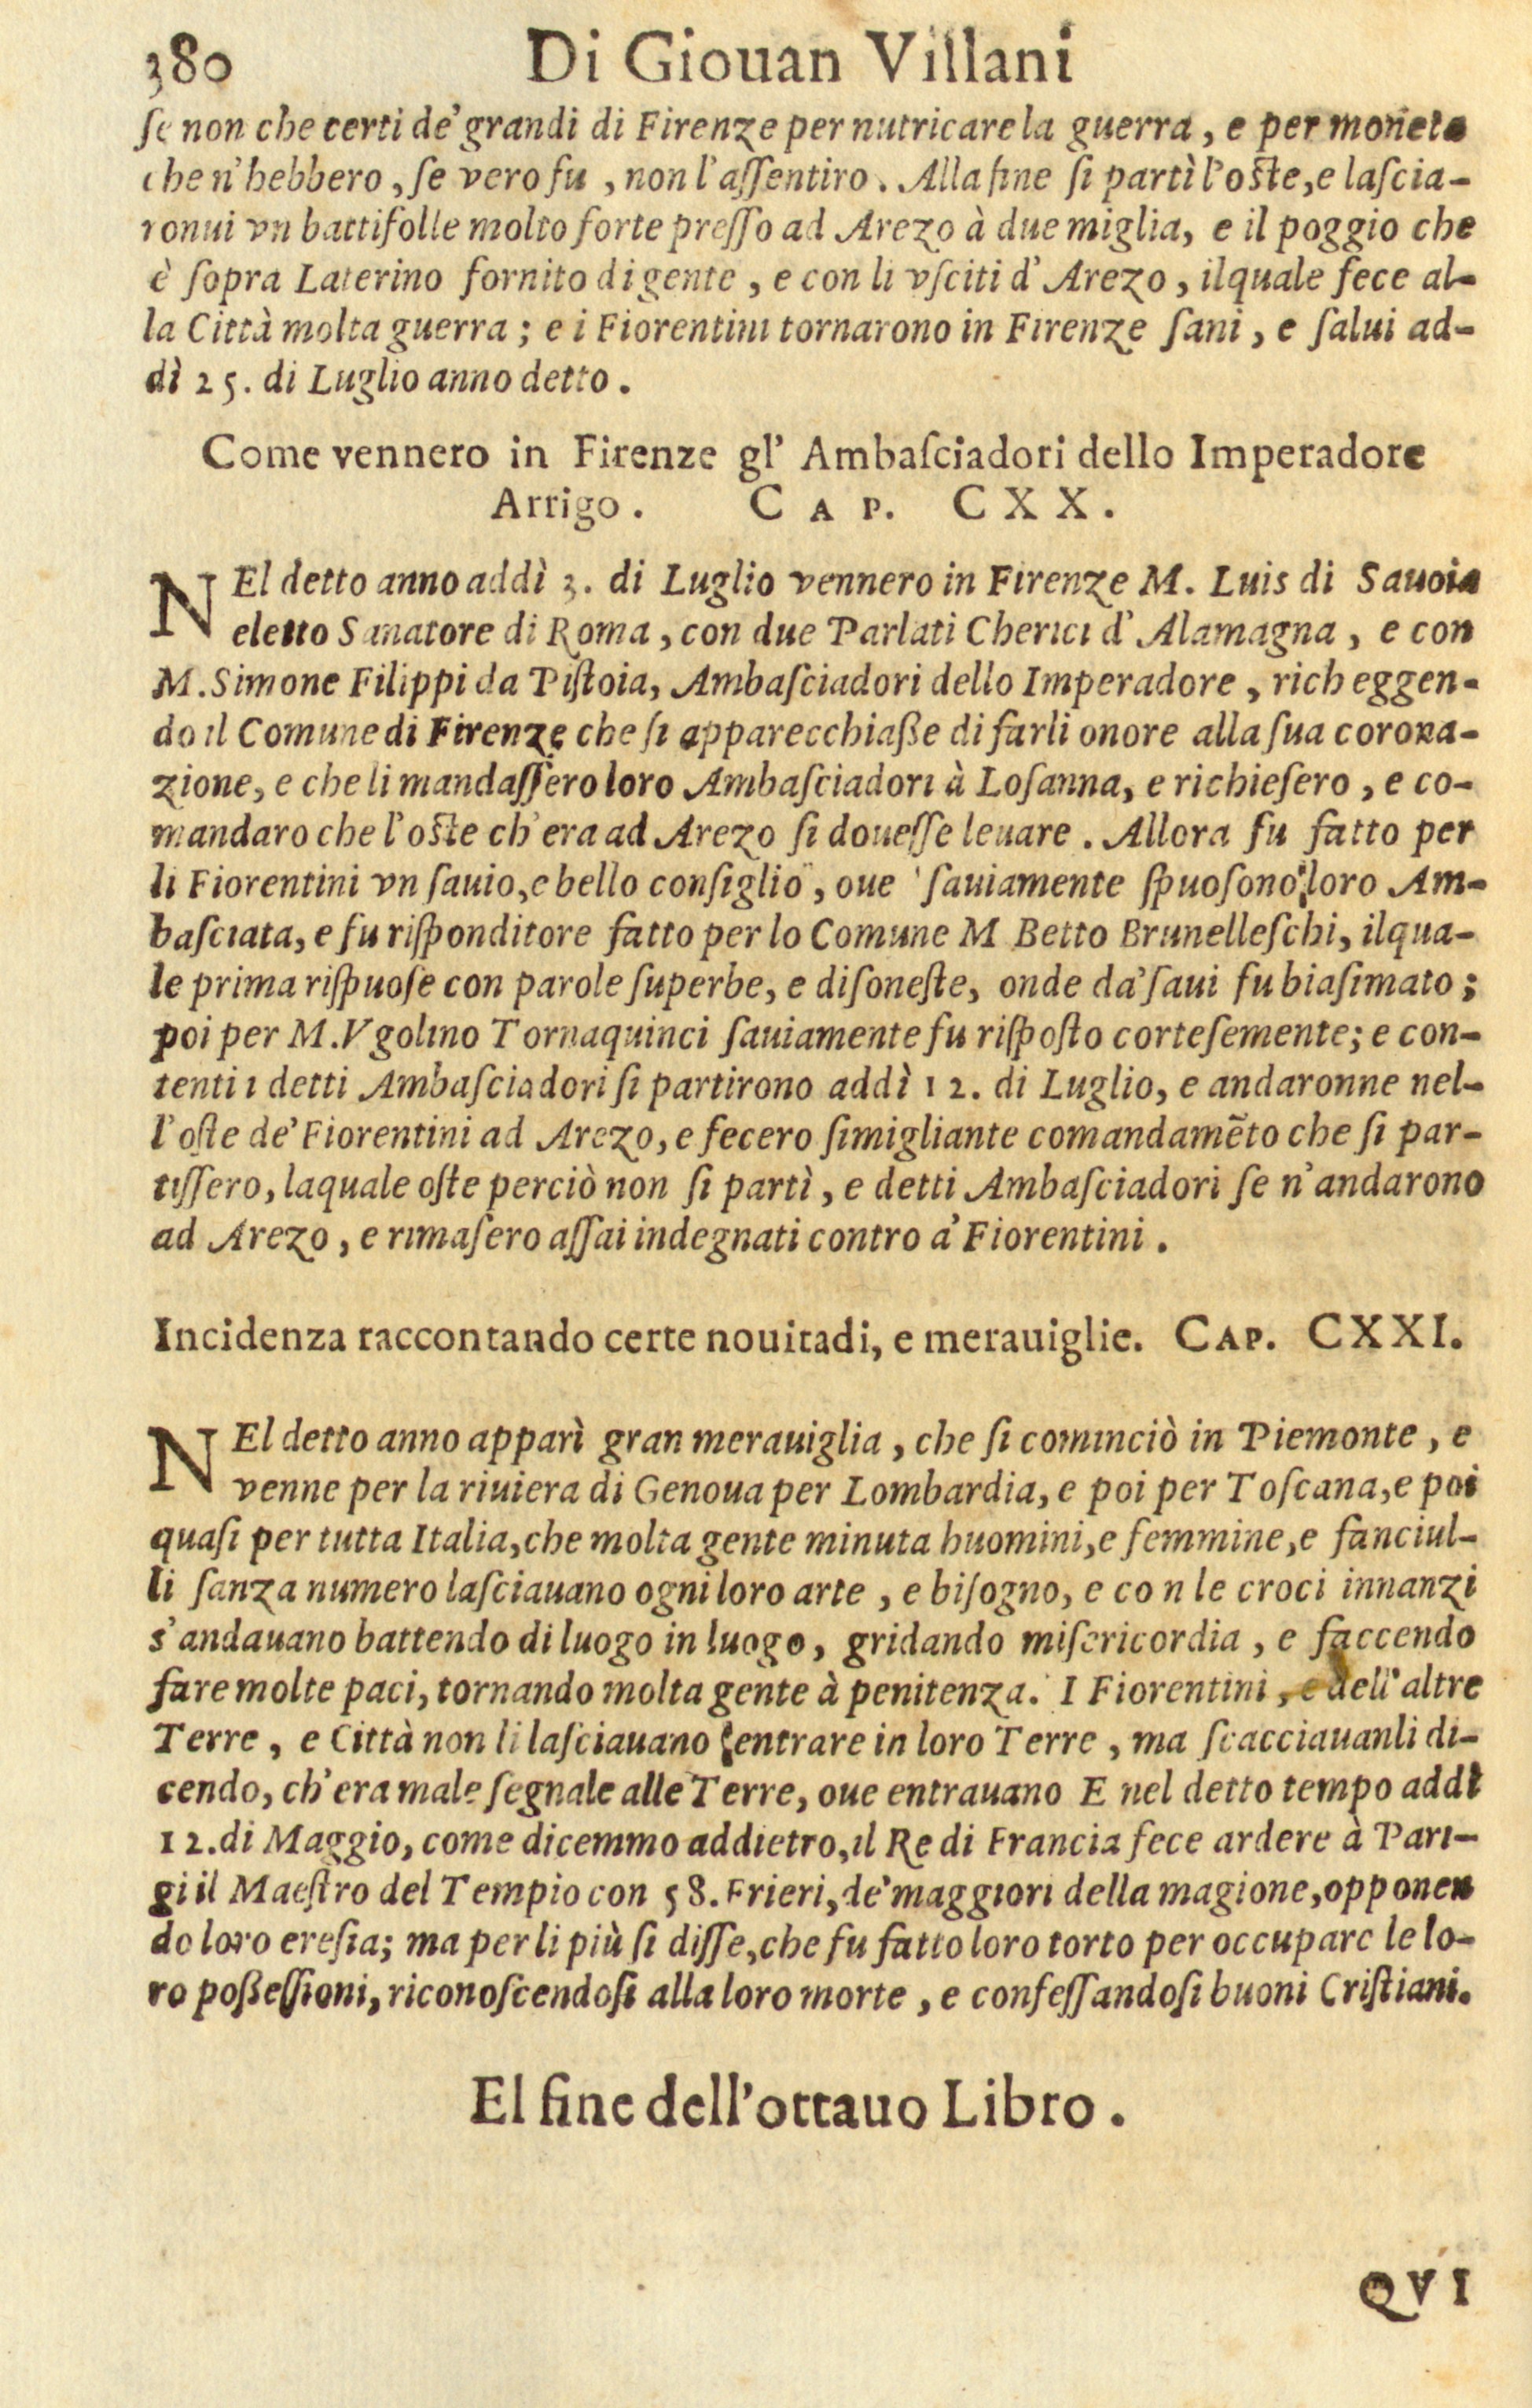 380 Di Giouan Villani
ſe non che certi de' grandi di Firenze per nutricare la guerra, e per moneta
che n'hebbero, ſe vero fu, non l'aſſentiro. Alla fine ſi partì l'oſte, e laſcia-
ronui vn battifolle molto forte preſſo ad Arezo à due miglia, e il poggio che
è ſopra Laterino fornito di gente, e con li vſciti d'Arezo, ilquale fece al-
la Città molta guerra; e i Fiorentini tornarono in Firenze ſani, e ſalui ad-
dì 25. di Luglio anno detto.
Come vennero in Firenze gl' Ambaſciadori dello Imperadore
Arrigo. CAP. CXX.
NEl detto anno addì 3. di Luglio vennero in Firenze M. Luis di Sauoia
eletto Sanatore di Roma, con due Parlati Cherici d'Alamagna, e con
M. Simone Filippi da Piſtoia, Ambaſciadori dello Imperadore, richeggen-
do il Comune di Firenze che ſi apparecchiaße di farli onore alla ſua corona-
zione, e che li mandaſſero loro Ambaſciadori à Loſanna, e richieſero, e co-
mandaro che l'oſte ch'era ad Arezo ſi doueſſe leuare. Allora fu fatto per
li Fiorentini vn ſauio, e bello conſiglio, oue ſauiamente ſpuoſono loro Am-
baſciata, e fu riſponditore fatto per lo Comune M Betto Brunelleſchi, ilqua-
le prima riſpuoſe con parole ſuperbe, e diſoneſte, onde da' ſaui fu biaſimato;
poi per M. Vgolino Tornaquinci ſauiamente fu riſpoſto corteſemente; e con-
tenti i detti Ambaſciadori ſi partirono addì 12. di Luglio, e andaronne nel-
l'oſte de' Fiorentini ad Arezo, e fecero ſimigliante comandamẽto che ſi par-
tiſſero, laquale oſte perciò non ſi partì, e detti Ambaſciadori ſe n'andarono
ad Arezo, e rimaſero aſſai indegnati contro a' Fiorentini.
Incidenza raccontando certe nouitadi, e merauiglie. CAP. CXXI.
NEl detto anno apparì gran merauiglia, che ſi cominciò in Piemonte, e
venne per la riuiera di Genoua per Lombardia, e poi per Toſcana, e poi
quaſi per tutta Italia, che molta gente minuta huomini, e femmine, e fanciul-
li ſanza numero laſciauano ogni loro arte, e biſogno, e co n le croci innanzi
s'andauano battendo di luogo in luogo, gridando miſericordia, e faccendo
fare molte paci, tornando molta gente à penitenza. I Fiorentini, e dell'altre
Terre, e Città non li laſciauano entrare in loro Terre, ma ſcacciauanli di-
cendo, ch'era male ſegnale alle Terre, oue entrauano E nel detto tempo addì
12. di Maggio, come dicemmo addietro, il Re di Francia fece ardere à Pari-
gi il Maeſtro del Tempio con 58. Frieri, de' maggiori della magione, opponen
do loro ereſia; ma per li più ſi diſſe, che fu fatto loro torto per occupare le lo-
ro poßeſſioni, riconoſcendoſi alla loro morte, e confeſſandoſi buoni Criſtiani.
El fine dell'ottauo Libro.
QVI